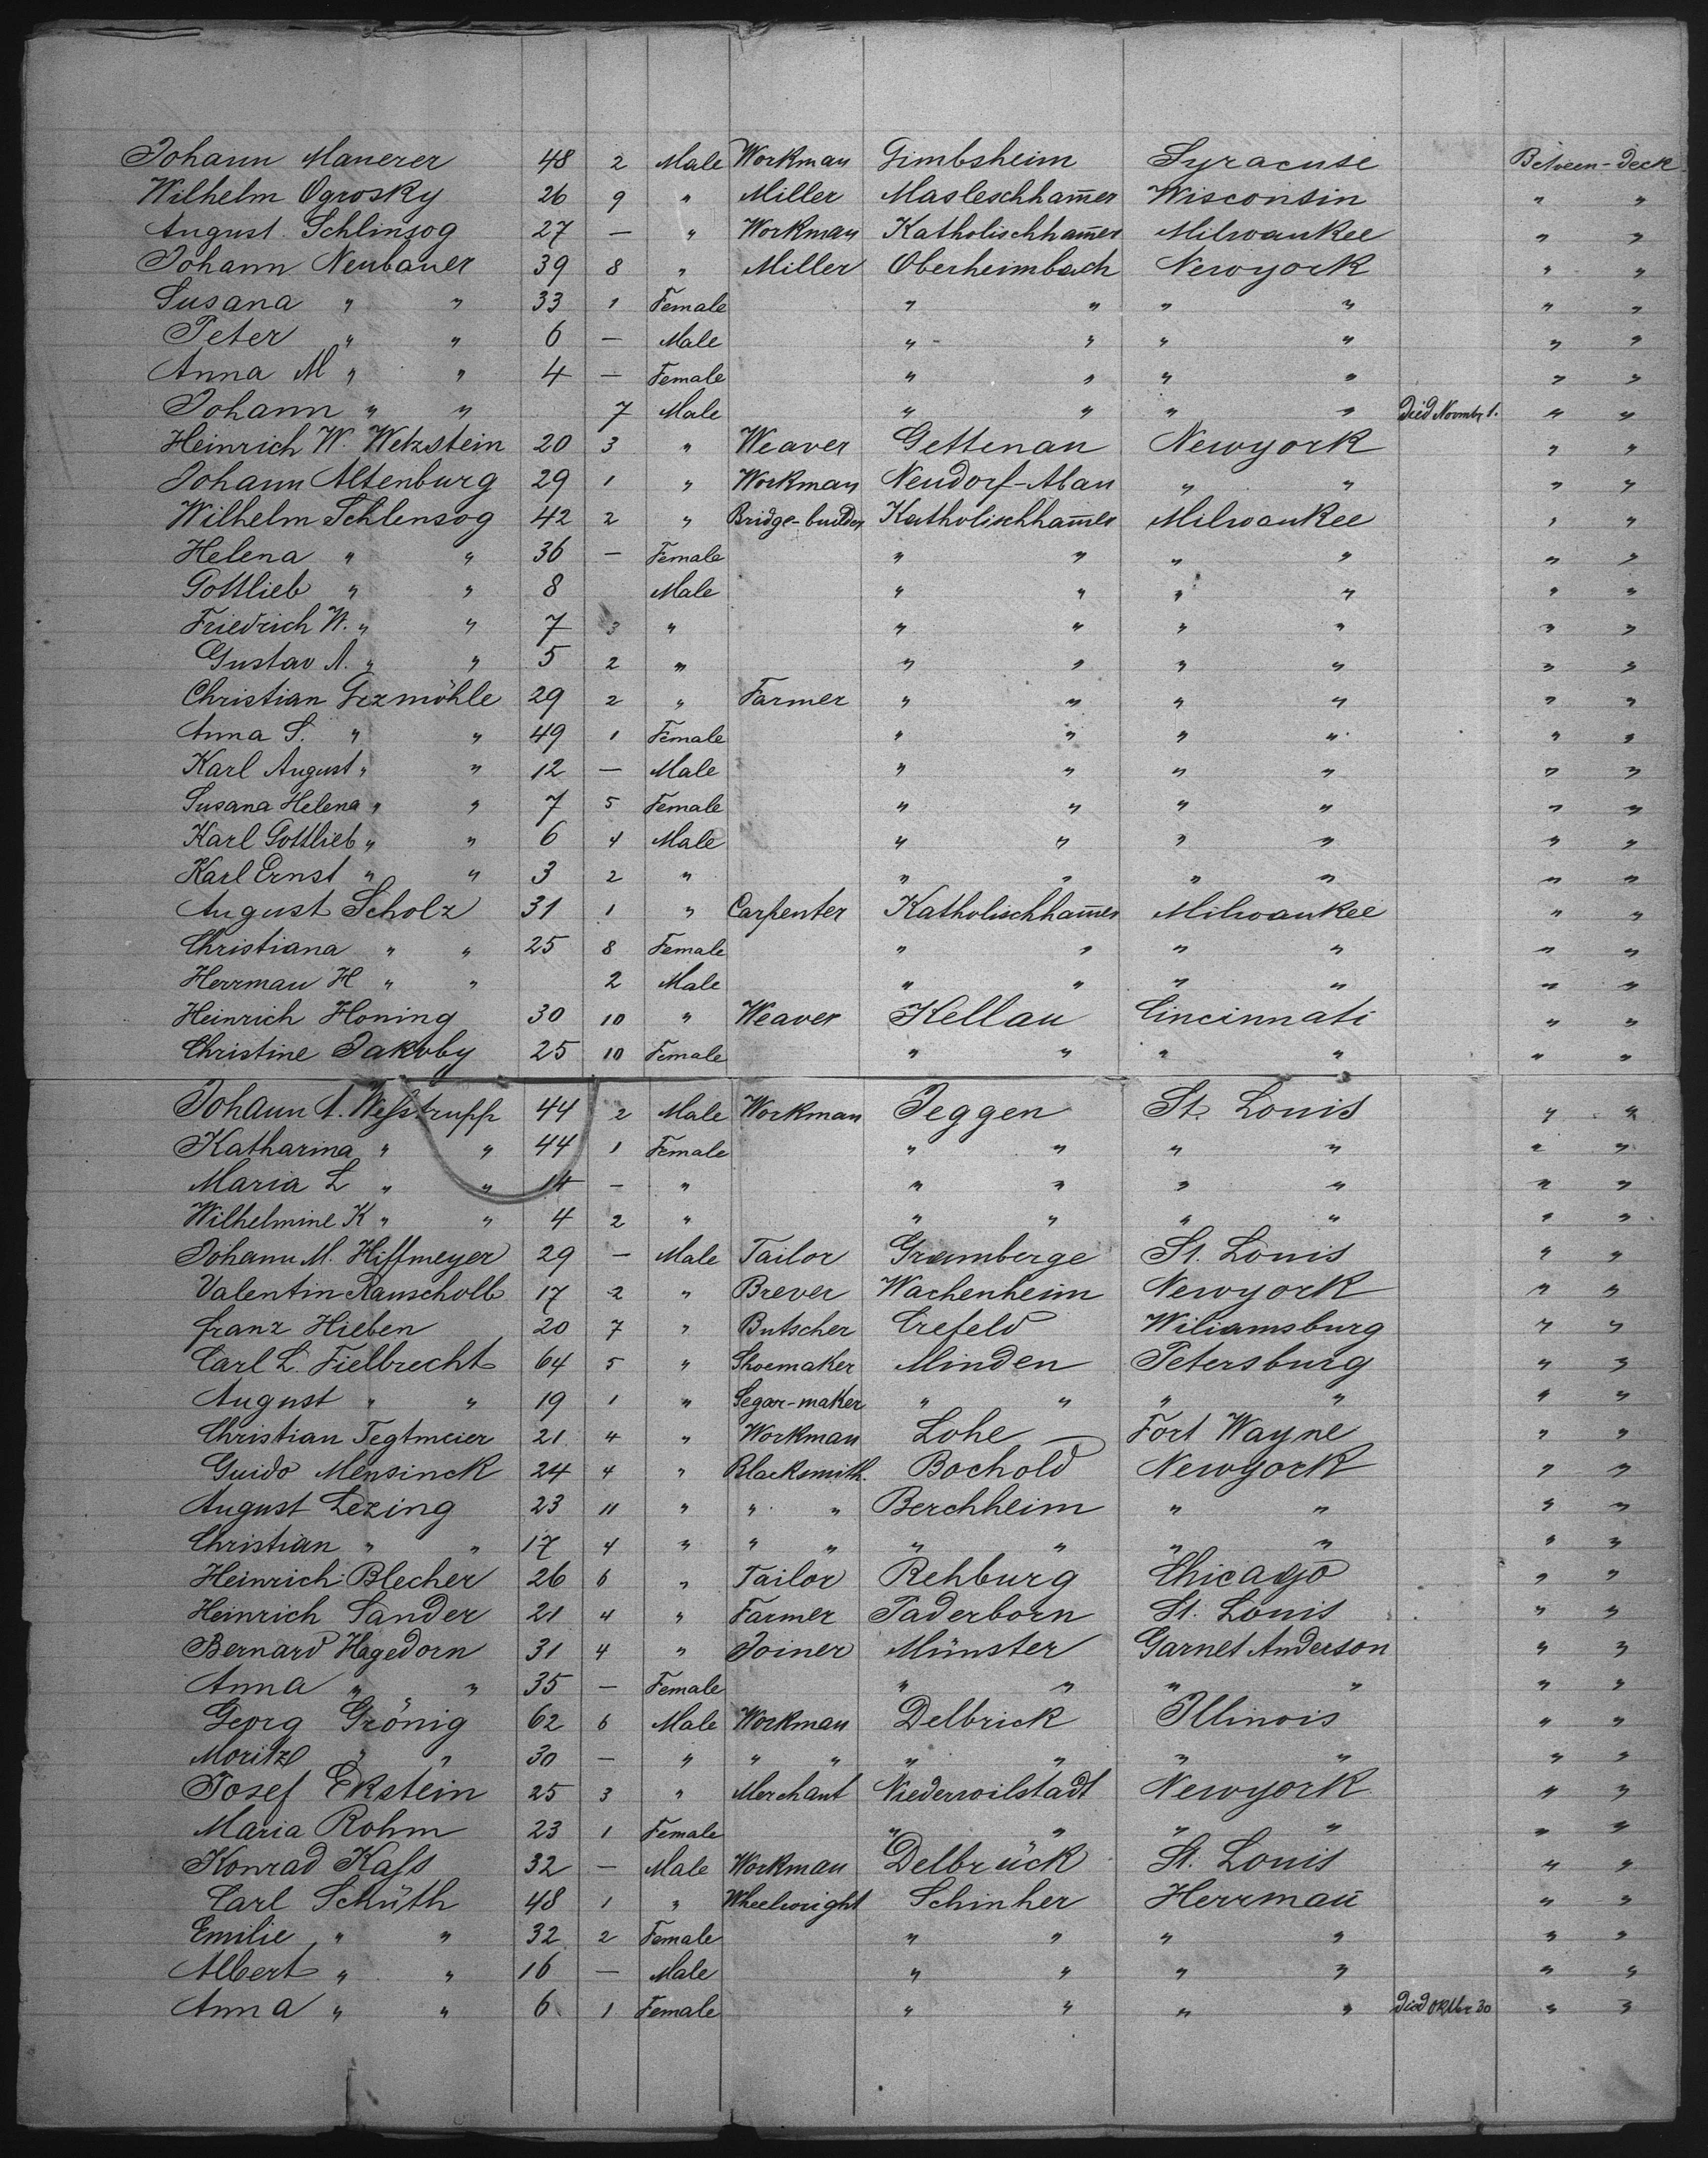 Johann Manerer 48 2 Male Workman Gimbsheim Syracuse Betveen-deck
Wilhelm Ogrosky 26 9 " Miller Masleschham̄er Wisconsin " "
August Schlinsog 27 — " Workman Katholischham̄er Milwaukee " "
Johann Neubauer 39 8 " Miller Oberheimbach Newyork " "
Susana " " 33 1 Female " " " " " "
Peter " " 6 — Male " " " " " "
Anna M " " 4 — Female " " " " " "
Johann " " 7 Male " " " " died Novmbr 1. " "
Heinrich W. Wetzstein 20 3 " Weaver Gettenau Newyork " "
Johann Altenburg 29 1 " Workman Neudorf-Alau " " " "
Wilhelm Schlensog 42 2 " Bridge-builder Katholischham̄er Milwaukee " "
Helena " " 36 — Female " " " " " "
Gottlieb " " 8 Male " " " " " "
Friedrich W. " " 7 3 " " " " " " "
Gustav A. " " 5 2 " " " " " " "
Christian Gezmöhle 29 2 " Farmer " " " " " "
Anna S. " " 49 1 Female " " " " " "
Karl August " " 12 — Male " " " " " "
Susana Helena " " 7 5 Female " " " " " "
Karl Gottlieb " " 6 4 Male " " " " " "
Karl Ernst " " 3 2 " " " " " " "
August Scholz 31 1 " Carpenter Katholischham̄er Milwaukee " "
Christiana " " 25 8 Female " " " " " "
Herrmau H " " 2 Male " " " " " "
Heinrich Honing 30 10 " Weaver Kellau Cincinnati " "
Christine Jakoby 25 10 Female " " " " " "
Johann A. Weſstrupp 44 2 Male Workman Jeggen St. Louis " "
Katharina " " 44 1 Female " " " " " "
Maria L " " 14 — " " " " " " "
Wilhelmine K " " 4 2 " " " " " " "
Johann M. Hiffmeyer 29 — Male Tailor Gramberge St. Louis " "
Valentin Rauscholb 17 2 " Brever Wachenheim Newyork " "
franz Hieben 20 7 " Butscher Crefeld Wiliamsburg " "
Carl L. Fielbrecht 64 5 " Shoemaker Minden Petersburg " "
August " " 19 1 " Segar-maker " " " " " "
Christian Tegtmeier 21 4 " Workman Lohe Fort Wayne " "
Guido Mensinck 24 4 " Blacksmith Bochold Newyork " "
August Lezing 23 11 " " " Berchheim " " " "
Christian " " 17 4 " " " " " " " " "
Heinrich Blecher 26 6 " Tailor Rehburg Chicago " "
Heinrich Sander 21 4 " Farmer Paderborn St. Louis " "
Bernard Hagedorn 31 4 " Joiner Münster Garnet Anderson " "
Anna " " 35 — Female " " " " " "
Georg Grönig 62 6 Male Workman Delbrick Illinois " "
Moritz " " 30 — " " " " " " " " "
Josef Ekstein 25 3 " Merchant Niederwilstadt Newyork " "
Maria Rohm 23 1 Female " " " " " "
Konrad Kaſs 32 — Male Workman Delbrück St. Louis " "
Carl Schüth 48 1 " Wheelwright Schinher Herrman̄ " "
Emilie " " 32 2 Female " " " " " "
Albert " " 16 — Male " " " " " "
Anna " " 6 1 Female " " " " died Oktbr 30 " "